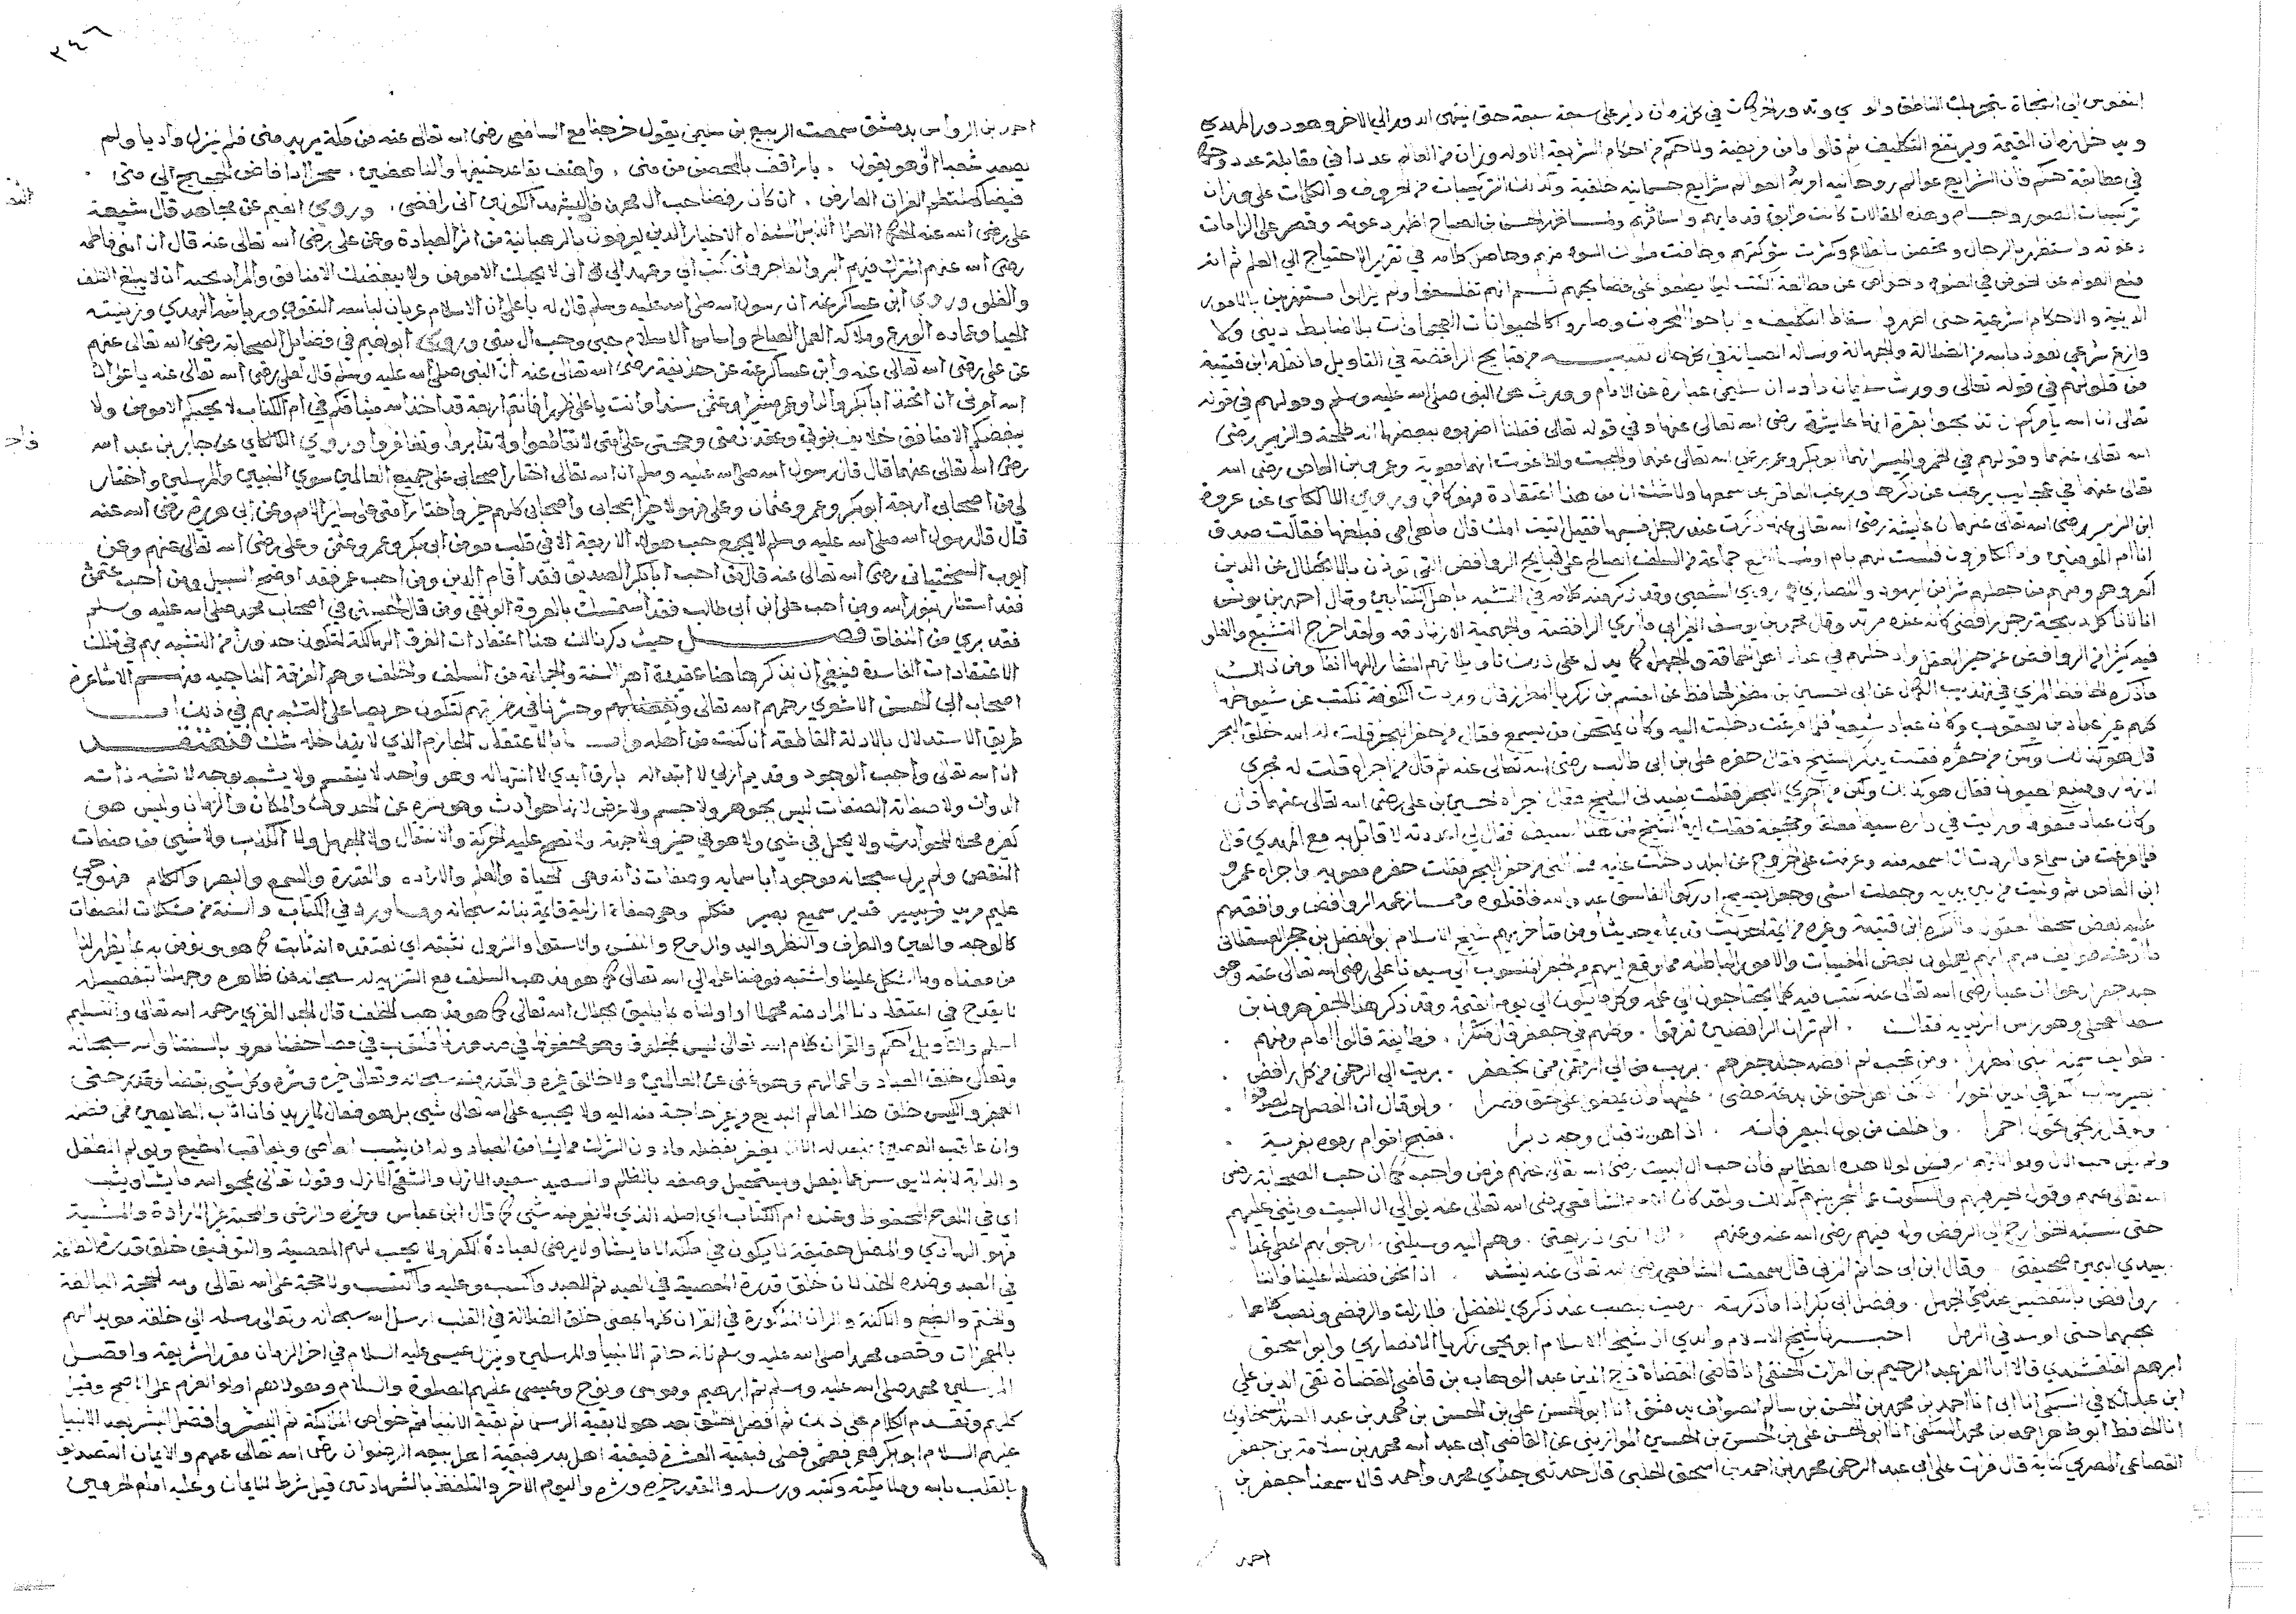 النفوس الى النجاة بتحريك الناطق والوصي وتدور الحركات في كل زمان داير على سبعة سبعة حتى ينتهي الدور الى الاخر وهو دور المهدي
ويدخل زمان القيمة ويرتفع التكليف ثم قالوا ما من فريضة ولا حكم من احكام الشريعة الا وله وزان من العالم عددا في مقابلة عدد وحكما
في مطابقة حكم فان الشرايع عوالم روحانية امرية والعوالم شرايع جسمانية خلقية وكذلك التركيبات من الحروف والكلمات على وزان
تركيبات الصور والاجسام وهذه المقالات كانت طريق قدمايهم واسلافهم الحسن بن الصباح اظهر دعوته وقصر على الزامات
دعوته واستظهر بالرجال وتحصن بالقلاع وكثرت شوكتهم وخافت ملوك السوء منهم وحاصل كلامه في تقرير الاحتياج الى المعلم ثم انه
منع العوام عن الخوض في العلوم والخواص عن مطالعة الكتب ليلا يطلعوا على فضايحهم ثم انهم تفلسفوا ولم يزالوا مستهزئين بالامور
الدينية والاحكام الشرعية حتى اظهروا اسقاط التكليف واباحوا المحرمات وصاروا كالحيوانات العجماوات بلا ضابط ديني ولا
وازع شرعي نعوذ بالله من الضلالة والجهالة ونساله الصيانة في كل حال من قبايح الرافضة في التاويل ما نقله ابن قتيبة
من قولهم في قوله تعالى وورث سليمان داود ان سليمن عبارة عن الامام وورث عن النبي صلى الله عليه وسلم وقولهم في قوله
تعالى ان الله يامركم ان تذبحوا بقرة انها عايشة رضي الله تعالى عنها وفي قوله تعالى فقلنا اضربوه ببعضها انه طلحة والزبير رضي
الله تعالى عنهما وقولهم في الخمر والميسر انهما ابو بكر وعمر رضي الله تعالى عنهما والجبت والطاغوت انهما معوية وعمرو بن العاص رضي الله
تعالى عنهما في عجايب يرغب عن ذكرها ويرغب العاقل عن سمعها ولا شك ان من هذا اعتقاده فهو كافر وروى اللالكاي عن عروة
ابن الزبير رضي الله تعالى عنهما ان عايشة رضي الله تعالى عنها ذكرت عند رجل فسبها فقيل اتسب امك قال ما هي امي فبلغها فقالت صدق
انا ام المومنين واما الكافرون فلست لهم بام جماعة من السلف الصالح على قبايح الروافض التي توذن بالابطال عن الدين
وقال احمد بن يونس
انا لا ناكل ذبيحة رجل رافضي فانه عندي مرتد وقال محمد بن يوسف الفريابي ما ارى الرافضة والجهمية الا زنادقة ولقد اخرج التشيع والغلو
فيه كثيرا من الروافض عن حيز العقل وادخلهم في عداد اهل الحماقة والجهل كما يدل على ذلك تاويلاتهم المشار اليها انفا ومن ذلك
ما ذكره الحافظ المزي في تهذيب الكمال عن ابي الحسين بن مظفر الحافظ عن القسم بن زكريا المطرز قال وردت الكوفة فكتبت عن شيوخها
كلهم غير عباد بن يعقوب وكان عباد شيعيا فلما فرغت دخلت اليه وكان يمتحن من يسمع فقال من حفر البحر قلت له الله خلق البحر
قال هو كذلك ولكن من حفره فقلت يذكر الشيخ فقال حفره علي بن ابي طالب رضي الله تعالى عنه ثم قال من اجراه قلت الله مجري
الانهار ومنبع العيون فقال هو كذلك ولكن من اجرى البحر فقلت يفيدني الشيخ فقال اجراه الحسين بن علي رضي الله تعالى عنهما قال
وكان عباد مكفوفا ورايت في داره سيفا معلقا وحجفة فقلت ايها الشيخ لمن هذا السيف فقال لي اعددته لا قاتل به مع المهدي قال
فلما فرغت من سماع ما اردت ان اسمعه منه وعزمت على الخروج عن البلد دخلت عليه فسالني من حفر البحر فقلت حفره معوية واجراه عمرو
ابن العاص ثم وثبت من بين يديه وجعلت امشي وجعل يصيح ادركوا الفاسق عدو الله فاقتلوه ومما زعمه الروافض ووافقهم
عليه بعض ضعفا العقول ما ذكره ابن قتيبة وغيره من ايمة الحديث قديما وحديثا ومن متاخريهم شيخ الاسلام ابو الفضل بن حجر العسقلاني
جلد جفر ادعوا ان عليا رضي الله تعالى عنه كتب فيه كلما يحتاجون الى علمه وكل ما يكون الى يوم القيمة وقد ذكر هذا الجفر هرون بن
سعد العجلي وهو راس الزيدية فقال الم تر ان الرافضين تفرقوا وكلهم في جعفر قال منكرا فطايفة قالوا امام ومنهم
طوايف سمته النبي المطهرا ومن عجب لم اقضه جلد جفرهم بريت الى الرحمن ممن تجفر بريت الى الرحمن من كل رافض
بصير بباب الكفر في الدين اعورا اذا كف اهل الحق عن بدعة مضى عليها وان يمضوا على الحق قصرا ولو قال ان الفيل ضب لصدقوا
ولو قال زنجي تحول احمرا واخلف من بول البعير فانه اذا هو للاقبال وجه دبرا فقبح اقوام رموه بفرية
ولو بين حب الال وهو اثارهم الرفض لولا هذه العظايم فان حب ال البيت رضي الله تعالى عنهم فرض واجب كما ان حب الصحابة رضي
الله تعالى عنهم وقول الخير فيهم والسكوت عما شجر بينهم كذلك ولقد كان الامام الشافعي رضي الله تعالى عنه يوالي ال البيت ويثني عليهم
حتى نسبته الخوارج الى الرفض وله فيهم رضي الله عنه وعنهم ال النبي ذريعتي وهم اليه وسيلتي ارجو بهم اعطى غدا
بيدي اليمين صحيفتي وقال ابن ابي حاتم المزني قال سمعت الشافعي رضي الله تعالى عنه ينشد اذا نحن فضلنا عليا فاننا
روافض بالتفضيل عند ذوي الجهل وفضل ابي بكر اذا ما ذكرته رميت بنصب عند ذكري للفضل فلا زلت ذا رفض ونصب كلاهما
بحبهما حتى اوسد في الرمل اخبرنا شيخ الاسلام والدي انا شيخ الاسلام ابو يحيى زكريا الانصاري وابو اسحق
ابرهم القلقشندي قالا انا العز عبد الرحيم بن الفرات الحنفي انا قاضي القضاة تاج الدين عبد الوهاب بن قاضي القضاة تقي الدين علي
ابن عبد الكافي السبكي انا ابي انا احمد بن محمد بن الحسن بن سالم الصواف بدمشق انا ابو الحسن علي بن الحسن بن محمد بن عبد الصمد السخاوي
انا الحافظ ابو طاهر احمد بن محمد السلفي انا ابو الحسن علي بن الحسن بن الحسين الموازيني عن القاضي ابي عبد الله محمد بن سلامة بن جعفر
القضاعي المصري كتابة قال قرات على ابي عبد الرحمن محمد بن احمد بن اسحق الحلبي قال حدثني جدي محمد واحمد قالا سمعنا جعفر بن
احمد
٢٤٦
احمد بن الرواس بدمشق سمعت الربيع بن سليمن يقول خرجنا مع الشافعي رضي الله تعالى عنه من مكة يريد منى فلم ينزل واديا ولم
يصعد شعبا الا وهو يقول يا راكبا قف بالمحصب من منى واهتف بقاعد خيفها والناهض سحرا اذا فاض الحجيج الى منى
فيضا كملتطم الفرات الفايض ان كان رفضا حب ال محمد فليشهد الثقلان اني رافضي وروى ابو نعيم عن مجاهد قال شيعة
علي رضي الله عنه الحلما العلما الذبل الشفاه الاخيار الذين يعرفون بالرهبانية من اثر العبادة وعن علي رضي الله تعالى عنه قال ان ابني فاطمة
رضي الله عنهم اشترك فيهم البر والفاجر واني كتب الي وعهد الي انه لا يحبك الا مومن ولا يبغضك الا منافق والمراد بحبه ان لا يبلغ
والغلو وروى ابن عساكر عنه ان رسول الله صلى الله عليه وسلم قال له يا علي ان الاسلام عريان لباسه التقوى ورياشه الهدى وزينته
الحيا وعماده الورع وملاكه العمل الصالح واساس الاسلام حبي وحب ال بيتي وروى ابو نعيم في فضايل الصحابة رضي الله تعالى عنهم
عن علي رضي الله تعالى عنه وابن عساكر عنه عن حذيفة رضي الله تعالى عنه ان النبي صلى الله عليه وسلم قال لعلي رضي الله تعالى عنه يا علي ان
الله امرني ان اتخذ ابا بكر والدا وعمر مشيرا وعثمن سندا وانت يا علي ظهيرا فانتم اربعة قد اخذ الله ميثاقكم في ام الكتاب لا يحبكم الا مومن ولا
يبغضكم الا منافق خلايف نبوتي وعقد ذمتي وحجتي على امتي لا تقاطعوا ولا تدابروا وتغافروا وروى اللالكاي عن جابر بن عبد الله
رضي الله تعالى عنهما قال قال رسول الله صلى الله عليه وسلم ان الله تعالى اختار اصحابي على جميع العالمين سوى النبيين والمرسلين واختار
لي من اصحابي اربعة ابو بكر وعمر وعثمان وعلي فهولا خير اصحابي واصحابي كلهم خير واختار امتي على ساير الامم وعن ابي هريرة رضي الله عنه
قال قال رسول الله صلى الله عليه وسلم لا يجمع حب هولا الاربعة الا في قلب مومن ابي بكر وعمر وعثمن وعلي رضي الله تعالى عنهم وعن
ايوب السختياني رضي الله تعالى عنه قال من احب ابا بكر الصديق فقد اقام الدين ومن احب عمر فقد اوضح السبيل ومن احب عثمن
فقد استنار بنور الله ومن احب علي ابن ابي طالب فقد استمسك بالعروة الوثقى ومن قال الحسنى في اصحاب محمد صلى الله عليه وسلم
فقد بري من النفاق فصل حيث ذكرنا لك هنا اعتقادات الفرق الهالكة لتكون حذورا من التشبه بهم في تلك
الاعتقادات الفاسدة فينبغي ان نذكر هاهنا عقيدة اهل السنة والجماعة من السلف والخلف وهم الفرقة الناجية الاشاعرة
اصحاب ابي الحسن الاشعري رحمهم الله تعالى ونفعنا بهم وحشرنا في زمرتهم لتكون حريصا على التشبه بهم في ذلك
طريق الاستدلال بالادلة القاطعة ان كنت من اهله بالاعتقاد الجازم الذي لا يداخله شك فنعتقد
ان الله تعالى واجب الوجود وقديم ازلي لا ابتدا له بارق ابدي لا انتها له وهو واحد لا ينقسم ولا يشبه بوجه لا تشبه ذاته
الذوات ولا صفاته الصفات ليس بجوهر ولا جسم ولا عرض لانها حوادث وهو منزه عن الحدوث والمكان والزمان وليس هو
محلا للحوادث ولا يحل في شي ولا هو في حيز ولا جهة ولا تصح عليه الحركة والانتقال ولا الجهل ولا الكذب ولا شي من صفات
النقص ولم يزل سبحانه موجودا باسمايه وصفات ذاته وهي الحياة والعلم والارادة والقدرة والسمع والبصر والكلام فهو حي
عليم مريد قدير سميع بصير متكلم وهي صفات ازلية قايمة بذاته سبحانه وما ورد في الكتاب والسنة من مشكلات الصفات
كالوجه والعين والطرف والنظر واليد والروح والنفس والاستوا والنزول نثبته اي نعتقده انه ثابت كما هو به نومن به فما ظهر لنا
من معناه وما اشكل علينا واشتبه فوضنا علمه الى الله تعالى كما هو مذهب السلف مع التنزيه له سبحانه عن ظاهره وجهلنا بتفصيله
لا يقدح في اعتقادنا المراد منه مجملا او اولناه بما يليق بجلال الله تعالى كما هو مذهب الخلف قال رحمه الله تعالى والتسليم
اسلم والتاويل احكم والقران كلام الله تعالى ليس بمخلوق وهو محفوظ في صدورنا مكتوب في مصاحفنا مقرو بالسنتنا والله سبحانه
وتعالى خلق العباد واعمالهم وهو غني عن العالمين ولا خالق غيره والقدر منه سبحانه وتعالى خيره وشره وكل شي بقضا وقدر حتى
العجز والكيس خلق هذا العالم البديع من غير حاجة منه اليه ولا يجب على الله تعالى شي بل هو فعال لما يريد فان اثاب الطايعين فمن فضله
وان عاقب العاصين فبعدله الا ان يغفر بفضله ما دون الشرك لمن يشا من العباد وله ان يثيب العاصي ويعاقب المطيع ويولم الطفل
والدابة لانه لا يسل عما يفعل ويستحيل وصفه بالظلم والسعيد سعيد الازل والشقي الازل وقوله تعالى يمحو الله ما يشا ويثبت
اي في اللوح المحفوظ وعنده ام الكتاب اي اصله الذي لا يغير منه شي كما قال ابن عباس وغيره والرضى والمحبة غير الارادة والمشية
فهو الهادي والمضل حقيقة لا يكون في ملكه الا ما يشا ولا يرضى لعباده الكفر ولا يحب لهم المعصية والتوفيق خلق قدرة الطاعة
في العبد وضده الخذلان خلق قدرة المعصية في العبد ثم للعبد ما كسب وعليه ما اكتسب ولا حجة على الله تعالى ولله الحجة البالغة
والختم والطبع والاكنة والران المذكورة في القران كلها بمعنى خلق الضلالة في القلب ارسل الله سبحانه وتعالى رسله الى خلقه مويدا لهم
بالمعجزات وخص محمدا صلى الله عليه وسلم بانه خاتم الانبيا والمرسلين وينزل عيسى عليه السلام في اخر الزمان مقررا لشريعته وافضل
المرسلين محمد صلى الله عليه وسلم ثم ابرهيم وموسى ونوح وعيسى عليهم الصلوة والسلام وهولا هم اولو العزم على الاصح وقيل
كلهم وتقدم الكلام على ذلك ثم افضل الخلق بعد هولا بقية الرسل ثم بقية الانبيا ثم خواص الملايكة ثم البشر وافضل البشر بعد الانبيا
عليهم السلام ابو بكر فعمر فعثمن فعلي فبقية العشرة فبقية اهل بدر فبقية اهل بيعة الرضوان رضي الله تعالى عنهم والايمان التصديق
بالقلب بالله وملايكته وكتبه ورسله والقدر خيره وشره واليوم الاخر والتلفظ بالشهادتين قيل شرط للايمان وعليه امام الحرمين